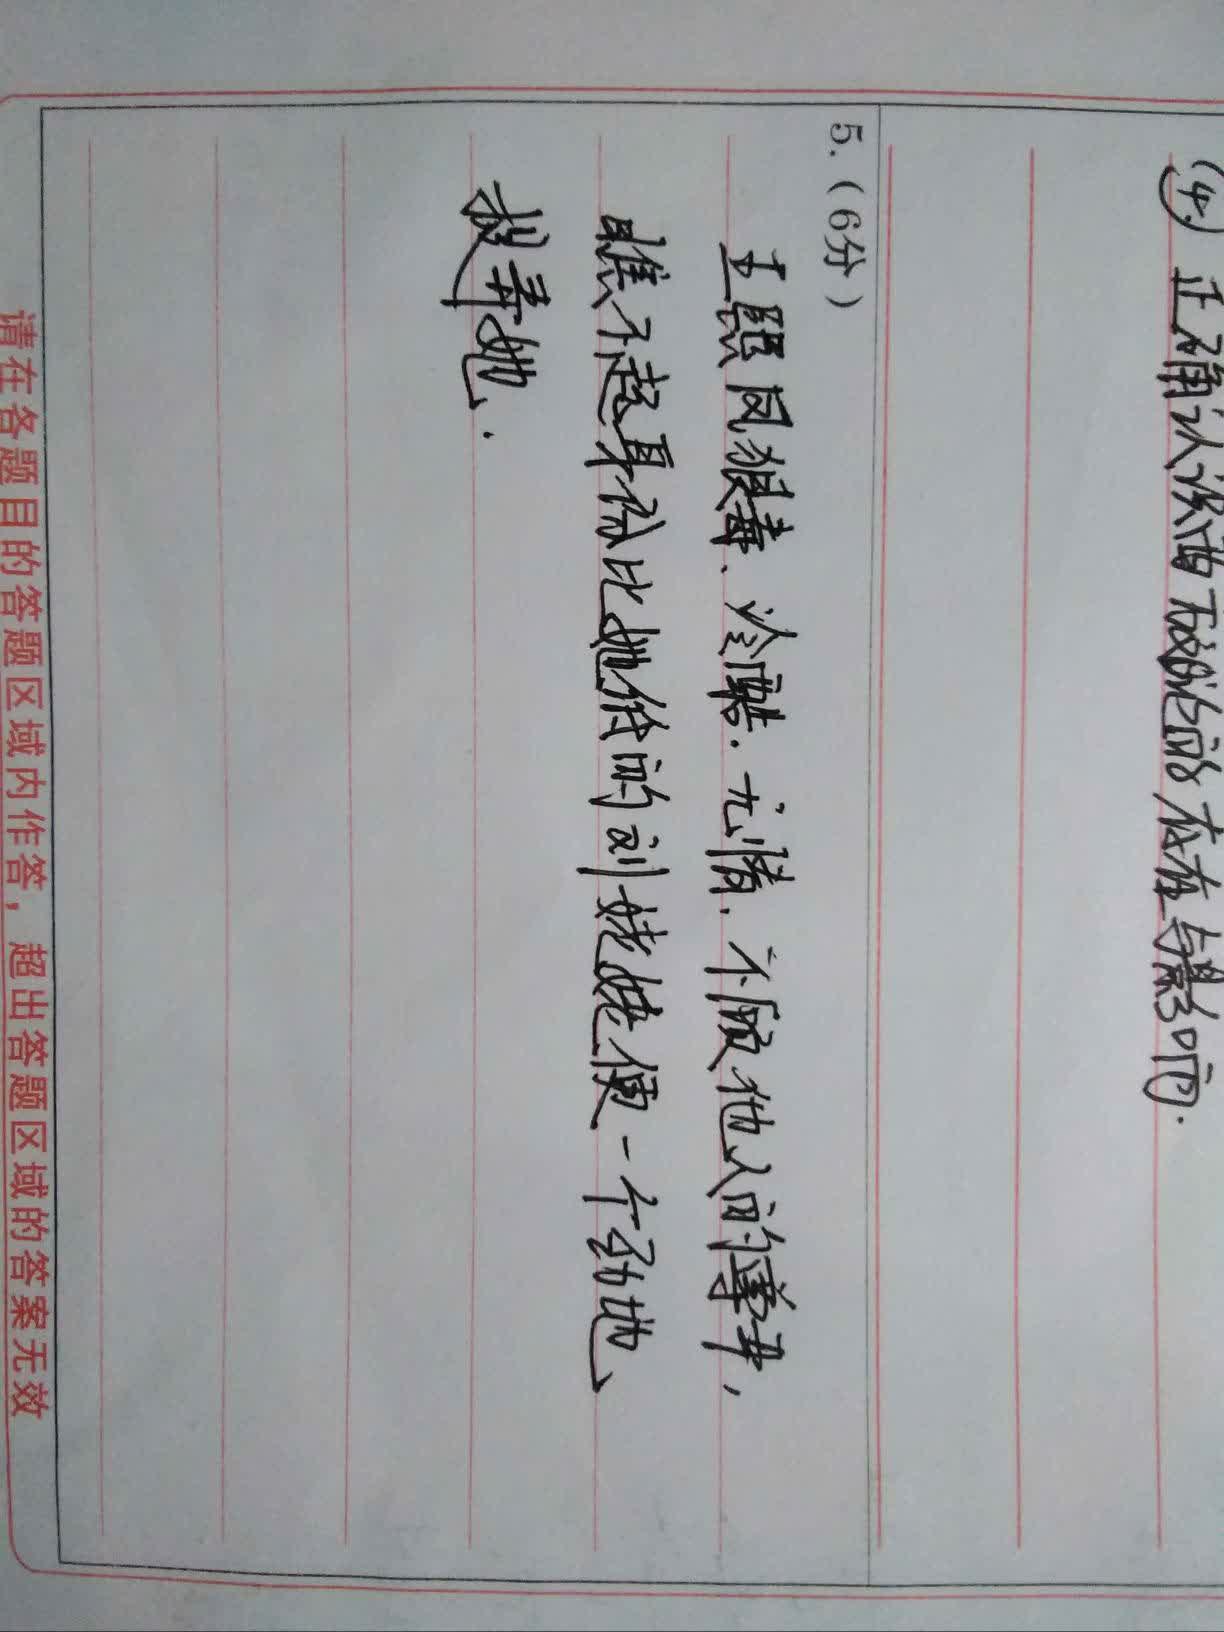 (4) 正确认识苗顶的存在与影响.
5.(6分)
王熙凤狠毒、冷酷.无情.不顾他人的尊卑,
瞧不起身份比她低的刘姥姥便一个劲地、
捉弄她.
请在各题目的答题区域内作答，超出答题区域的答案无效